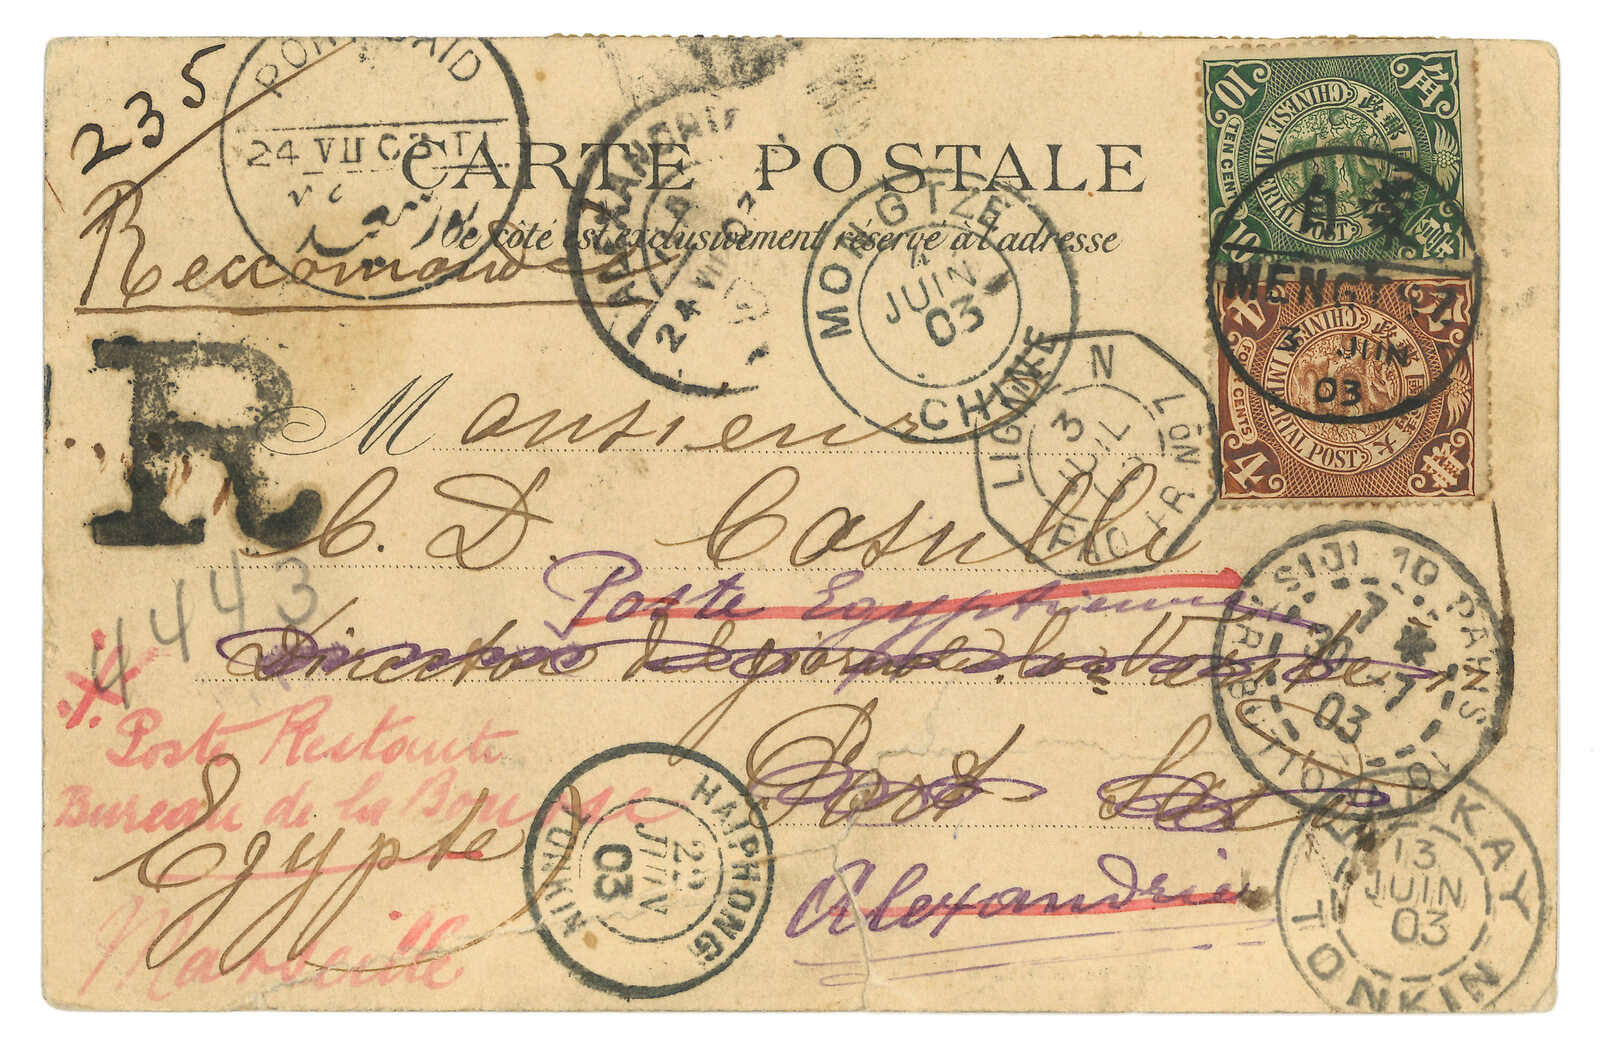 235
PORT SAID
24 VII 03
CARTE POSTALE
Ce côté est exclusivement réservé à l'adresse
Recommandé
ALEXANDRIE
24 VII 03
MONGTZE
4
JUIN
03
CHINE
10
CHINESE IMPERIAL POST
TEN CENTS
角
蒙自
MENGTSZ
3 JUN
03
4
CHINESE IMPERIAL POST
FOUR CENTS
LIGNE N
3
JUIL
03
PAQ. FR. Nº 1
R
Monsieur
C. D. Casulli
Poste Egyptienne
4443
Directeur de
Port Said
Egypte
Alexandrie
Poste Restante
Bureau de la Bourse
Marseille
HAIPHONG
JUIN
03
TONKIN
10 PAYS
7
30-7
03
LAO-KAY
13
JUIN
03
TONKIN